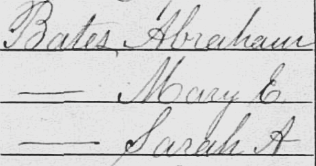 Bates, Abraham
— Mary E.
— Sarah A